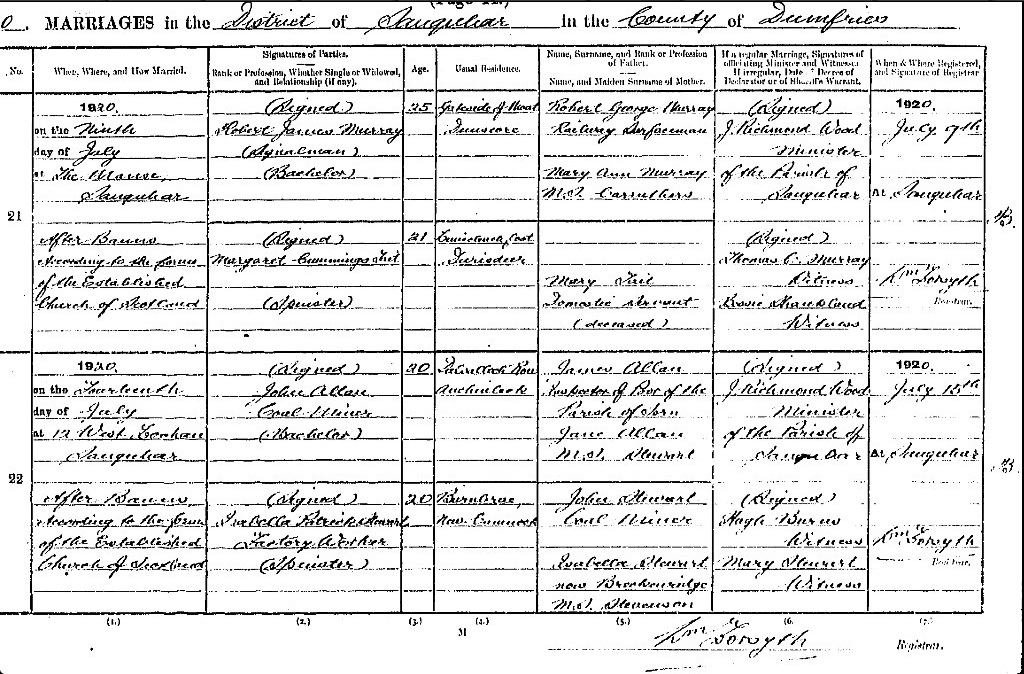 MARRIAGES in the District of Sanquhar in the County of Dumfries
No.
When, Where, and How Married.
Signatures of Parties.
Rank or Profession, Whether Single or Widowed, and Relationship (if any).
Age.
Usual Residence.
Name, Surname, and Rank or Profession of Father.
Name, and Maiden Surname of Mother.
If a regular Marriage, Signatures of officiating Minister and Witnesses.
If irregular, Date of Decree of Declarator or of Sheriff's Warrant.
When & Where Registered, and Signature of Registrar
21
1920.
on the Ninth
day of July
at The Manse,
Sanquhar
After Banns
According to the forms
of the Established
Church of Scotland
(Signed)
Robert James Murray
(Signalman)
(Bachelor)
(Signed)
Margaret Cummings
(Spinster)
25
21
Dunscore
Robert George Murray
Railway Surfaceman
Mary Ann Murray
M.S. Carruthers
Mary
Domestic Servant
(deceased)
(Signed)
J. Richmond Wood
Minister
of the Parish of
Sanquhar
(Signed)
Thomas C. Murray
Witness
Bessie Shankland
Witness
1920.
July 9th
At Sanquhar
Wm Forsyth
Registrar.
22
1920.
on the Fourteenth
day of July
at 12 West
Sanquhar
After Banns
According to the forms
of the Established
Church of Scotland
(Signed)
John Allan
Coal Miner
(Bachelor)
(Signed)
Isabella Patrick Stewart
Factory Worker
(Spinster)
20
20
Auchinleck
Burnbrae,
New Cumnock
James Allan
Inspector of Poor of the
Parish of Sorn
Jane Allan
M.S. Stewart
John Stewart
Coal Miner
Isabella Stewart
now Breckenridge
M.S. Stevenson
(Signed)
J. Richmond Wood
Minister
of the Parish of
Sanquhar
(Signed)
Hugh Burns
Witness
Mary Stewart
Witness
1920.
July 15th
At Sanquhar
Wm Forsyth
Registrar.
(1.) (2.) (3.) (4.) (5.) (6.) (7.)
M
Wm Forsyth
Registrar.